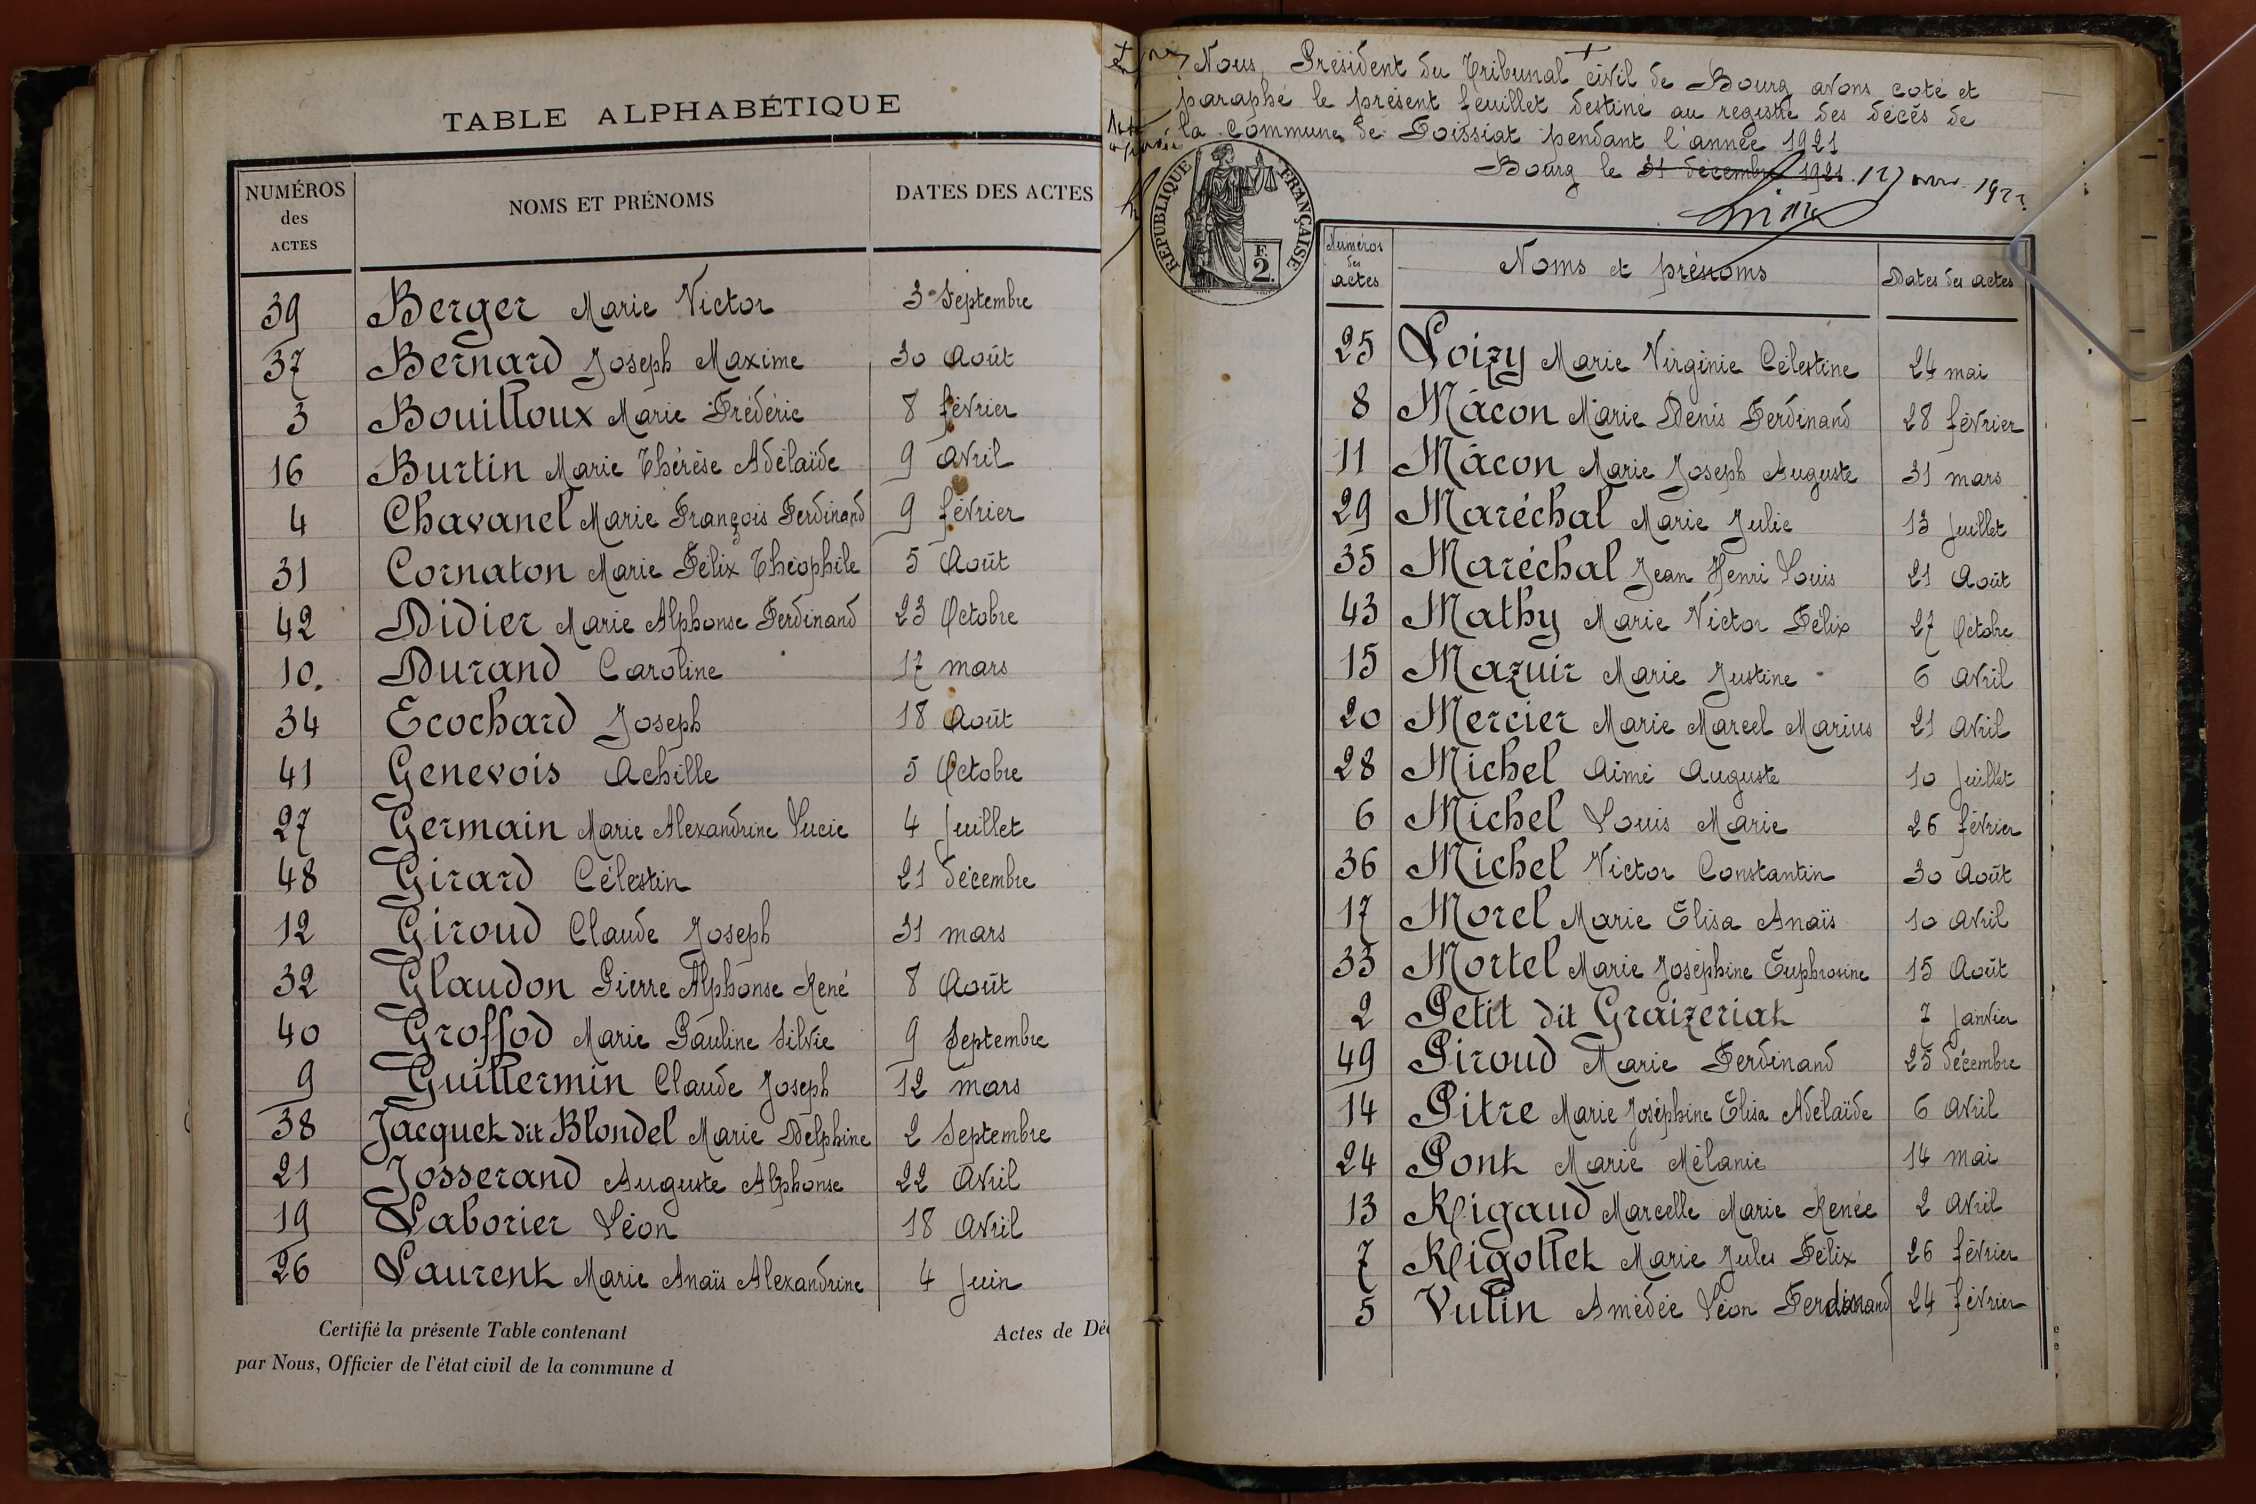 TABLE ALPHABÉTIQUE
NUMÉROS
des
ACTES
NOMS ET PRÉNOMS
DATES DES ACTES
39 Berger Marie Victor 3 Septembre
37 Bernard Joseph Maxime 30 Août
3 Bouilloux Marie Frédéric 8 février
16 Burtin Marie Thérèse Adélaïde 9 Avril
4 Chavanel Marie François Ferdinand 9 février
31 Cornaton Marie Félix Théophile 5 Août
42 Didier Marie Alphonse Ferdinand 23 Octobre
10. Durand Caroline 17 mars
34 Ecochard Joseph 18 Août
41 Genevois Achille 5 Octobre
27 Germain Marie Alexandrine Lucie 4 Juillet
48 Girard Célestin 21 décembre
12 Giroud Claude Joseph 31 mars
32 Glaudon Pierre Alphonse René 8 Août
40 Groffod Marie Pauline Silvie 9 Septembre
9 Guillermin Claude Joseph 12 mars
38 Jacquet dit Blondel Marie Delphine 2 Septembre
21 Josserand Auguste Alphonse 22 Avril
19 Laborier Léon 18 Avril
26 Laurent Marie Anaïs Alexandrine 4 Juin
Certifié la présente Table contenant Actes de Déc
par Nous, Officier de l'état civil de la commune d
Nous, Président du Tribunal civil de Bourg avons coté et
paraphé le présent feuillet destiné au registre des décès de
la commune de Foissiat pendant l'année 1921
Bourg le 31 décembre 1921.
RÉPUBLIQUE FRANÇAISE
F.
2.
Numéros
des
actes
Noms et prénoms
Dates des actes
25 Loizy Marie Virginie Célestine 24 mai
8 Mâcon Marie Denis Ferdinand 28 février
11 Mâcon Marie Joseph Auguste 31 mars
29 Maréchal Marie Julie 13 Juillet
35 Maréchal Jean Henri Louis 21 Août
43 Mathy Marie Victor Félix 27 Octobre
15 Mazuir Marie Justine 6 Avril
20 Mercier Marie Marcel Marius 21 Avril
28 Michel Aimé Auguste 10 Juillet
6 Michel Louis Marie 26 février
36 Michel Victor Constantin 30 Août
17 Morel Marie Elisa Anaïs 10 Avril
33 Mortel Marie Joséphine Euphrosine 15 Août
2 Petit dit Graizeriat 7 Janvier
49 Piroud Marie Ferdinand 25 décembre
14 Pitre Marie Joséphine Elisa Adélaïde 6 Avril
24 Pont Marie Mélanie 14 mai
13 Rigaud Marcelle Marie Renée 2 Avril
7 Rigollet Marie Jules Félix 26 février
5 Vulin Amédée Léon Ferdinand 24 février